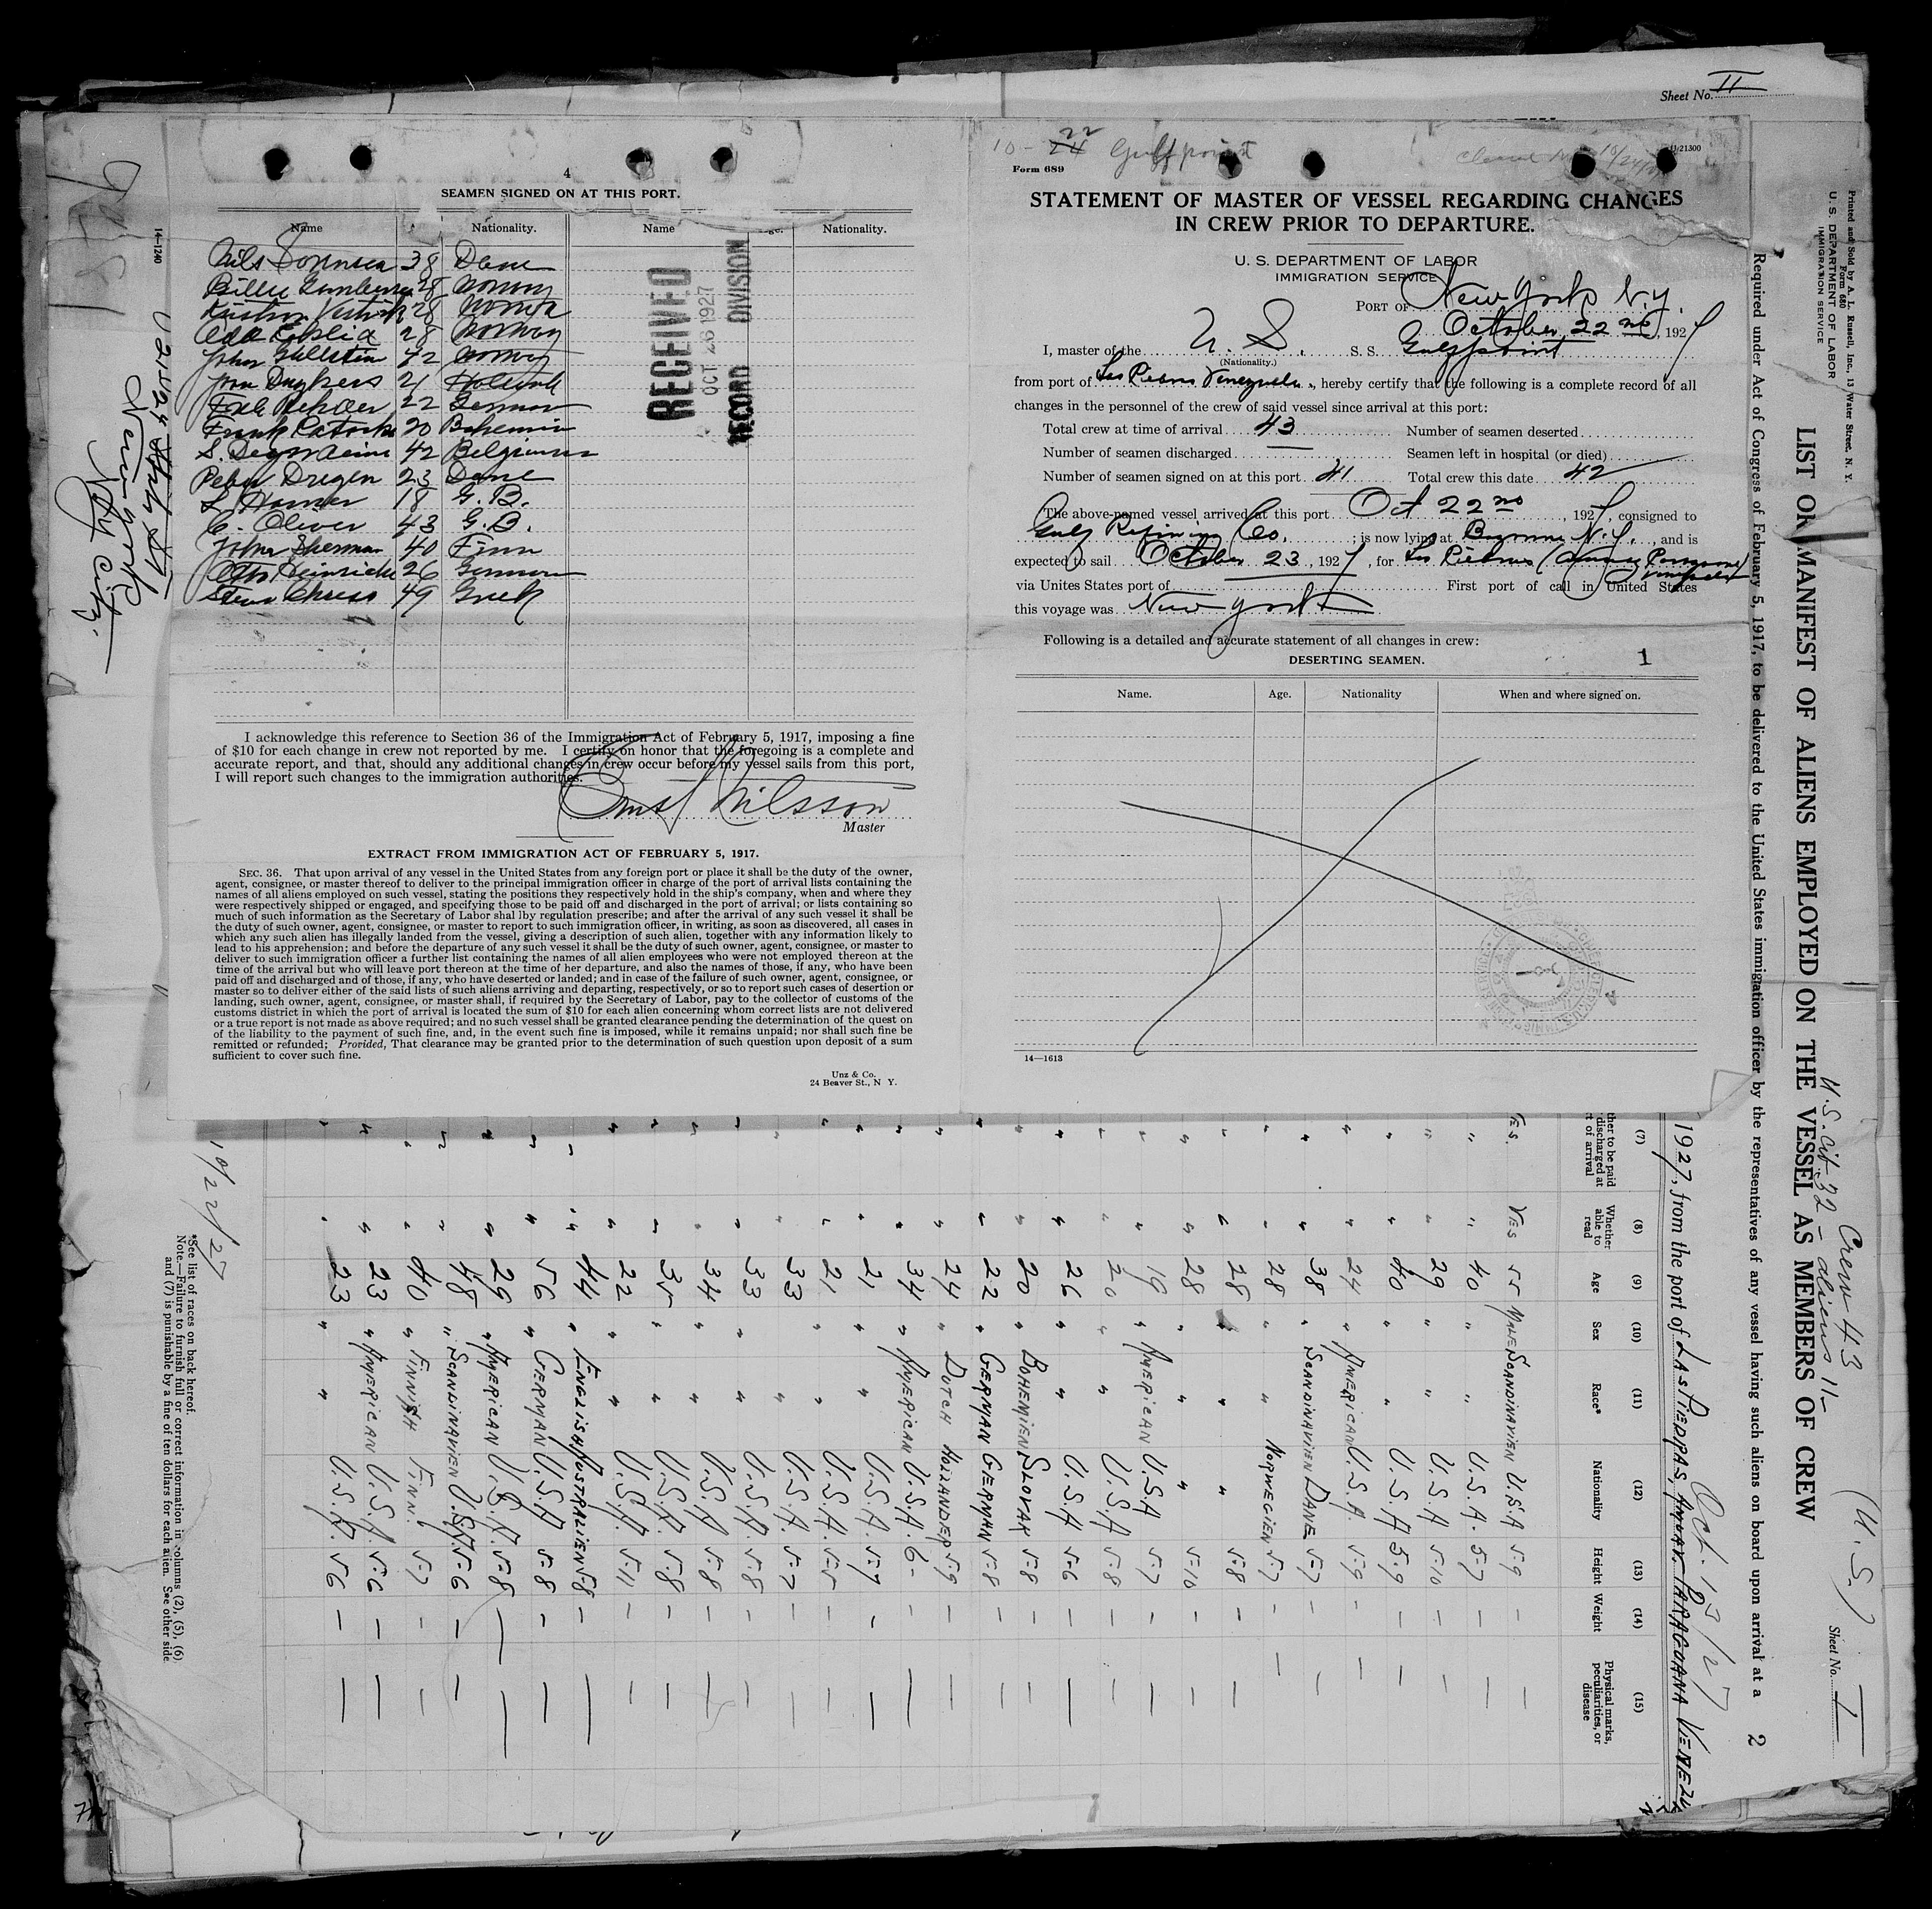 Sheet No. II
4
SEAMEN SIGNED ON AT THIS PORT.
Name Nationality. Name Age. Nationality.
Nils Sorensen 38 Dane
Billie 28 Norway
28 Norway
28 Norway
John 42 Norway
21 Holland
22 German
Frank 20 Bohemian
S. 42 Belgium
Peter 23 Dane
18 G. B.
C. Oliver 43 G. B.
John Sherman 40 Finn
Otto Heinrich 26 German
Chress 49 Greek
RECEIVED
OCT 26 1927
RECORD DIVISION
I acknowledge this reference to Section 36 of the Immigration Act of February 5, 1917, imposing a fine
of $10 for each change in crew not reported by me. I certify on honor that the foregoing is a complete and
accurate report, and that, should any additional changes in crew occur before my vessel sails from this port,
I will report such changes to the immigration authorities.
Ernst Nilsson
Master
EXTRACT FROM IMMIGRATION ACT OF FEBRUARY 5, 1917.
SEC. 36. That upon arrival of any vessel in the United States from any foreign port or place it shall be the duty of the owner,
agent, consignee, or master thereof to deliver to the principal immigration officer in charge of the port of arrival lists containing the
names of all aliens employed on such vessel, stating the positions they respectively hold in the ship's company, when and where they
were respectively shipped or engaged, and specifying those to be paid off and discharged in the port of arrival; or lists containing so
much of such information as the Secretary of Labor shal lby regulation prescribe; and after the arrival of any such vessel it shall be
the duty of such owner, agent, consignee, or master to report to such immigration officer, in writing, as soon as discovered, all cases in
which any such alien has illegally landed from the vessel, giving a description of such alien, together with any information likely to
lead to his apprehension; and before the departure of any such vessel it shall be the duty of such owner, agent, consignee, or master to
deliver to such immigration officer a further list containing the names of all alien employees who were not employed thereon at the
time of the arrival but who will leave port thereon at the time of her departure, and also the names of those, if any, who have been
paid off and discharged and of those, if any, who have deserted or landed; and in case of the failure of such owner, agent, consignee, or
master so to deliver either of the said lists of such aliens arriving and departing, respectively, or so to report such cases of desertion or
landing, such owner, agent, consignee, or master shall, if required by the Secretary of Labor, pay to the collector of customs of the
customs district in which the port of arrival is located the sum of $10 for each alien concerning whom correct lists are not delivered
or a true report is not made as above required; and no such vessel shall be granted clearance pending the determination of the quest on
of the liability to the payment of such fine, and, in the event such fine is imposed, while it remains unpaid; nor shall such fine be
remitted or refunded; Provided, That clearance may be granted prior to the determination of such question upon deposit of a sum
sufficient to cover such fine.
Unz & Co.
24 Beaver St., N Y.
14—1240
New York
City.
10-24 22 Gulfpoint
11/21300
Form 689
STATEMENT OF MASTER OF VESSEL REGARDING CHANGES
IN CREW PRIOR TO DEPARTURE.
U. S. DEPARTMENT OF LABOR
IMMIGRATION SERVICE
PORT OF New York N.Y.
October 22nd, 1927
I, master of the U. S. S. S. Gulfpoint
(Nationality.)
from port of Las Piedras Venezuela, hereby certify that the following is a complete record of all
changes in the personnel of the crew of said vessel since arrival at this port:
Total crew at time of arrival 43 Number of seamen deserted
Number of seamen discharged Seamen left in hospital (or died)
Number of seamen signed on at this port 41 Total crew this date 42
The above-named vessel arrived at this port Oct 22nd, 1927, consigned to
Gulf Refining Co. ; is now lying at Bayonne N.J., and is
expected to sail October 23, 1927, for Las Piedras
via Unites States port of First port of call in United States
this voyage was New York
Following is a detailed and accurate statement of all changes in crew:
DESERTING SEAMEN. 1
Name. Age. Nationality When and where signed on.
14—1613
Printed and Sold by A. L. Russell, Inc., 13 Water Street, N. Y.
Form 680
U. S. DEPARTMENT OF LABOR
IMMIGRATION SERVICE
Crew 43
U.S. Cit. 32 - aliens 11-
(U. S.)
Sheet No. I
LIST OR MANIFEST OF ALIENS EMPLOYED ON THE VESSEL AS MEMBERS OF CREW
Required under Act of Congress of February 5, 1917, to be delivered to the United States immigration officer by the representatives of any vessel having such aliens on board upon arrival at a 2
Oct. 13/27
1927, from the port of LAS PIEDRAS, AMUAY-PARAGUANA VENEZU
(7) (8) (9) (10) (11) (12) (13) (14) (15)
ther to be paid discharged at rt of arrival Whether able to read Age Sex Race* Nationality Height Weight Physical marks, peculiarities, or disease
YES. YES 55 MALE SCANDINAVIEN U.S.A 5-9 — —
" " 40 " " U.S.A. 5-7 — —
" " 29 " " U.S.A 5-10 — —
" " 40 " " U.S.A 5-9 — —
" " 24 " AMERICAN U.S.A. 5-9 — —
" " 38 " SCANDINAVIEN DANE 5-7 — —
" " 28 " " NORWEGIEN 5-7 — —
" " 28 " " " 5-8 — —
" " 28 " " " 5-10 — —
" " 19 " AMERICAN U.S.A 5-7 — —
" " 20 " " U.S.A 5-8 — —
" " 26 " " U.S.A 5-6 — —
" " 20 " BOHEMIEN SLOVAK 5-8 — —
" " 22 " GERMAN GERMAN 5-8 — —
" " 24 " DUTCH HOLLANDER 5-9 — —
" " 34 " AMERICAN U.S.A. 6- — —
" " 21 " " U.S.A. 5-7 — —
" " 21 " " U.S.A. 5-5 — —
" " 33 " " U.S.A. 5-7 — —
" " 33 " " U.S.A. 5-8 — —
" " 34 " " U.S.A 5-8 — —
" " 35 " " U.S.A. 5-8 — —
" " 22 " " U.S.A. 5-11 — —
" " 44 " ENGLISH AUSTRALIEN 5-8 — —
" " 56 " GERMAN U.S.A 5-8 — —
" " 29 " AMERICAN U.S.A. 5-8 — —
" " 48 " SCANDINAVIEN U.S.A. 5-6 — —
" " 40 " FINNISH FINN. 5-7 — —
" " 23 " AMERICAN U.S.A. 5-6 — —
" " 23 " " U.S.A. 5-6 — —
10/22/27
*See list of races on back hereof.
Note.—Failure to furnish full or correct information in columns (2), (5), (6)
and (7) is punishable by a fine of ten dollars for each alien. See other side